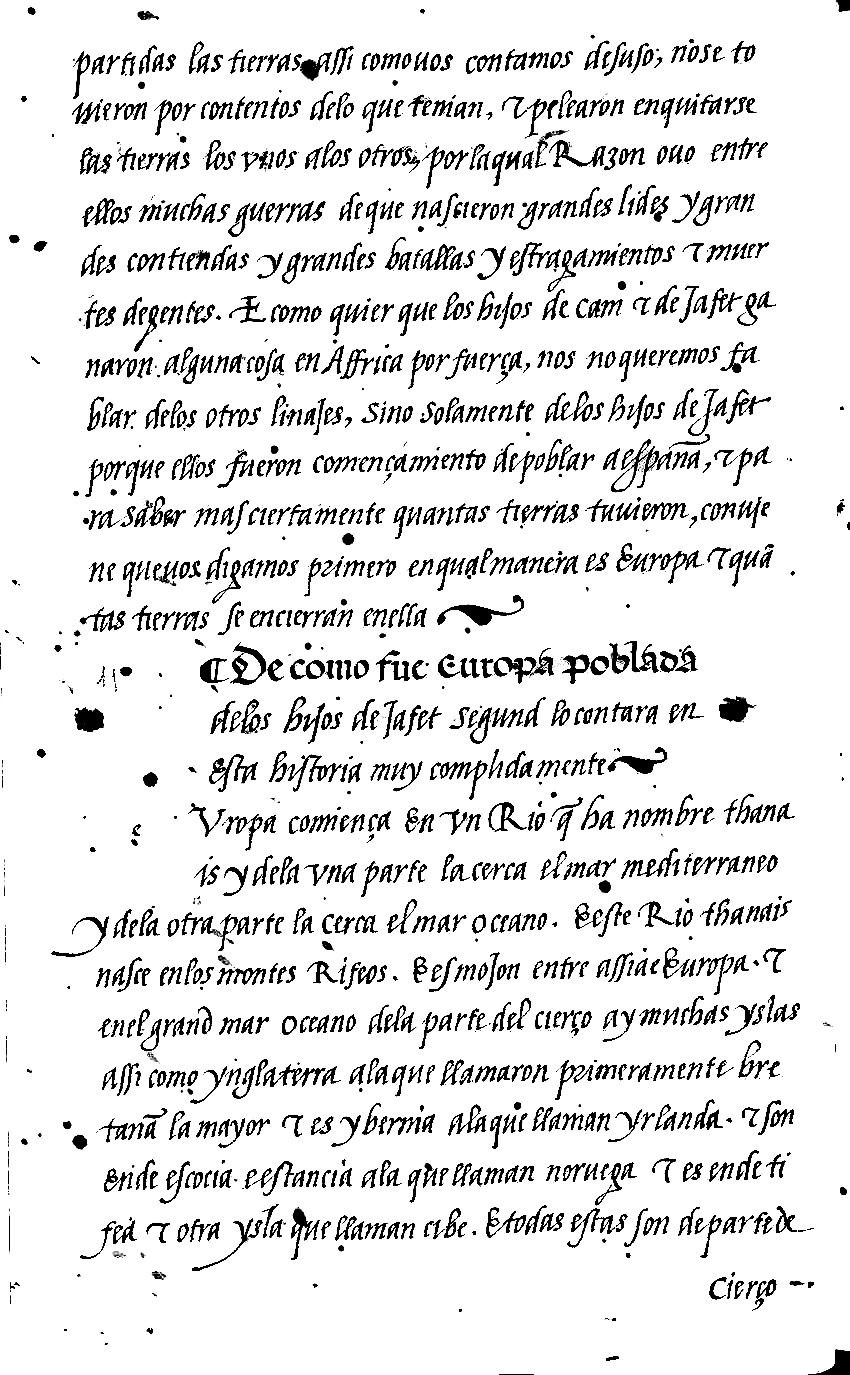 partidas las tierras assi comouos contamos desuso, nose to
uieron por contentos delo que tenian, τ pelearon enquitarse
las tierras los vnos alos otros, por laqual Razon ouo entre
ellos muchas guerras de que nascieron grandes lides y gran
des contiendas y grandes batallas y estragamientos τ muer
tes degentes. E como quier que los hijos de Cam τ de Jafet ga
naron alguna cosa en Affrica por fuerça, nos no queremos fa
blar delos otros linajes, sino solamente delos hijos de Jafet
porque ellos fueron començamiento de poblar a españa, τ pa
ra saber mas ciertamente quantas tierras tuuieron, conuje
ne que uos digamos primero en qual manera es Europa τ quā
tas tierras se encierran enella
¶ De como fue Europa poblada
delos hijos de Jafet segund lo contara en
esta historia muy complidamente
e
Vropa comiença en vn Rio q̃ ha nombre thana
is y dela vna parte la cerca el mar mediterraneo
y dela otra parte la cerca el mar oceano. E este Rio thanais
nasce enlos montes Rifeos. E es mojon entre assia e Europa. τ
enel grand mar oceano dela parte del cierço ay muchas yslas
assi como ynglaterra ala que llamaron primeramente bre
tanã la mayor τ es ybernia ala que llaman yrlanda. τ son
ende escocia e estancia ala que llaman noruega τ es ende ti
fea τ otra ysla que llaman cibe. E todas estas son de parte de
Cierço